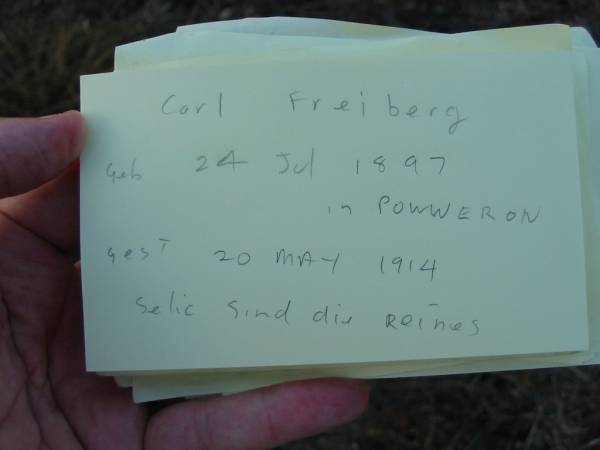 Carl Freiberg
geb 24 Jul 1897
in POWWERON
gest 20 MAY 1914
Selic sind die reines